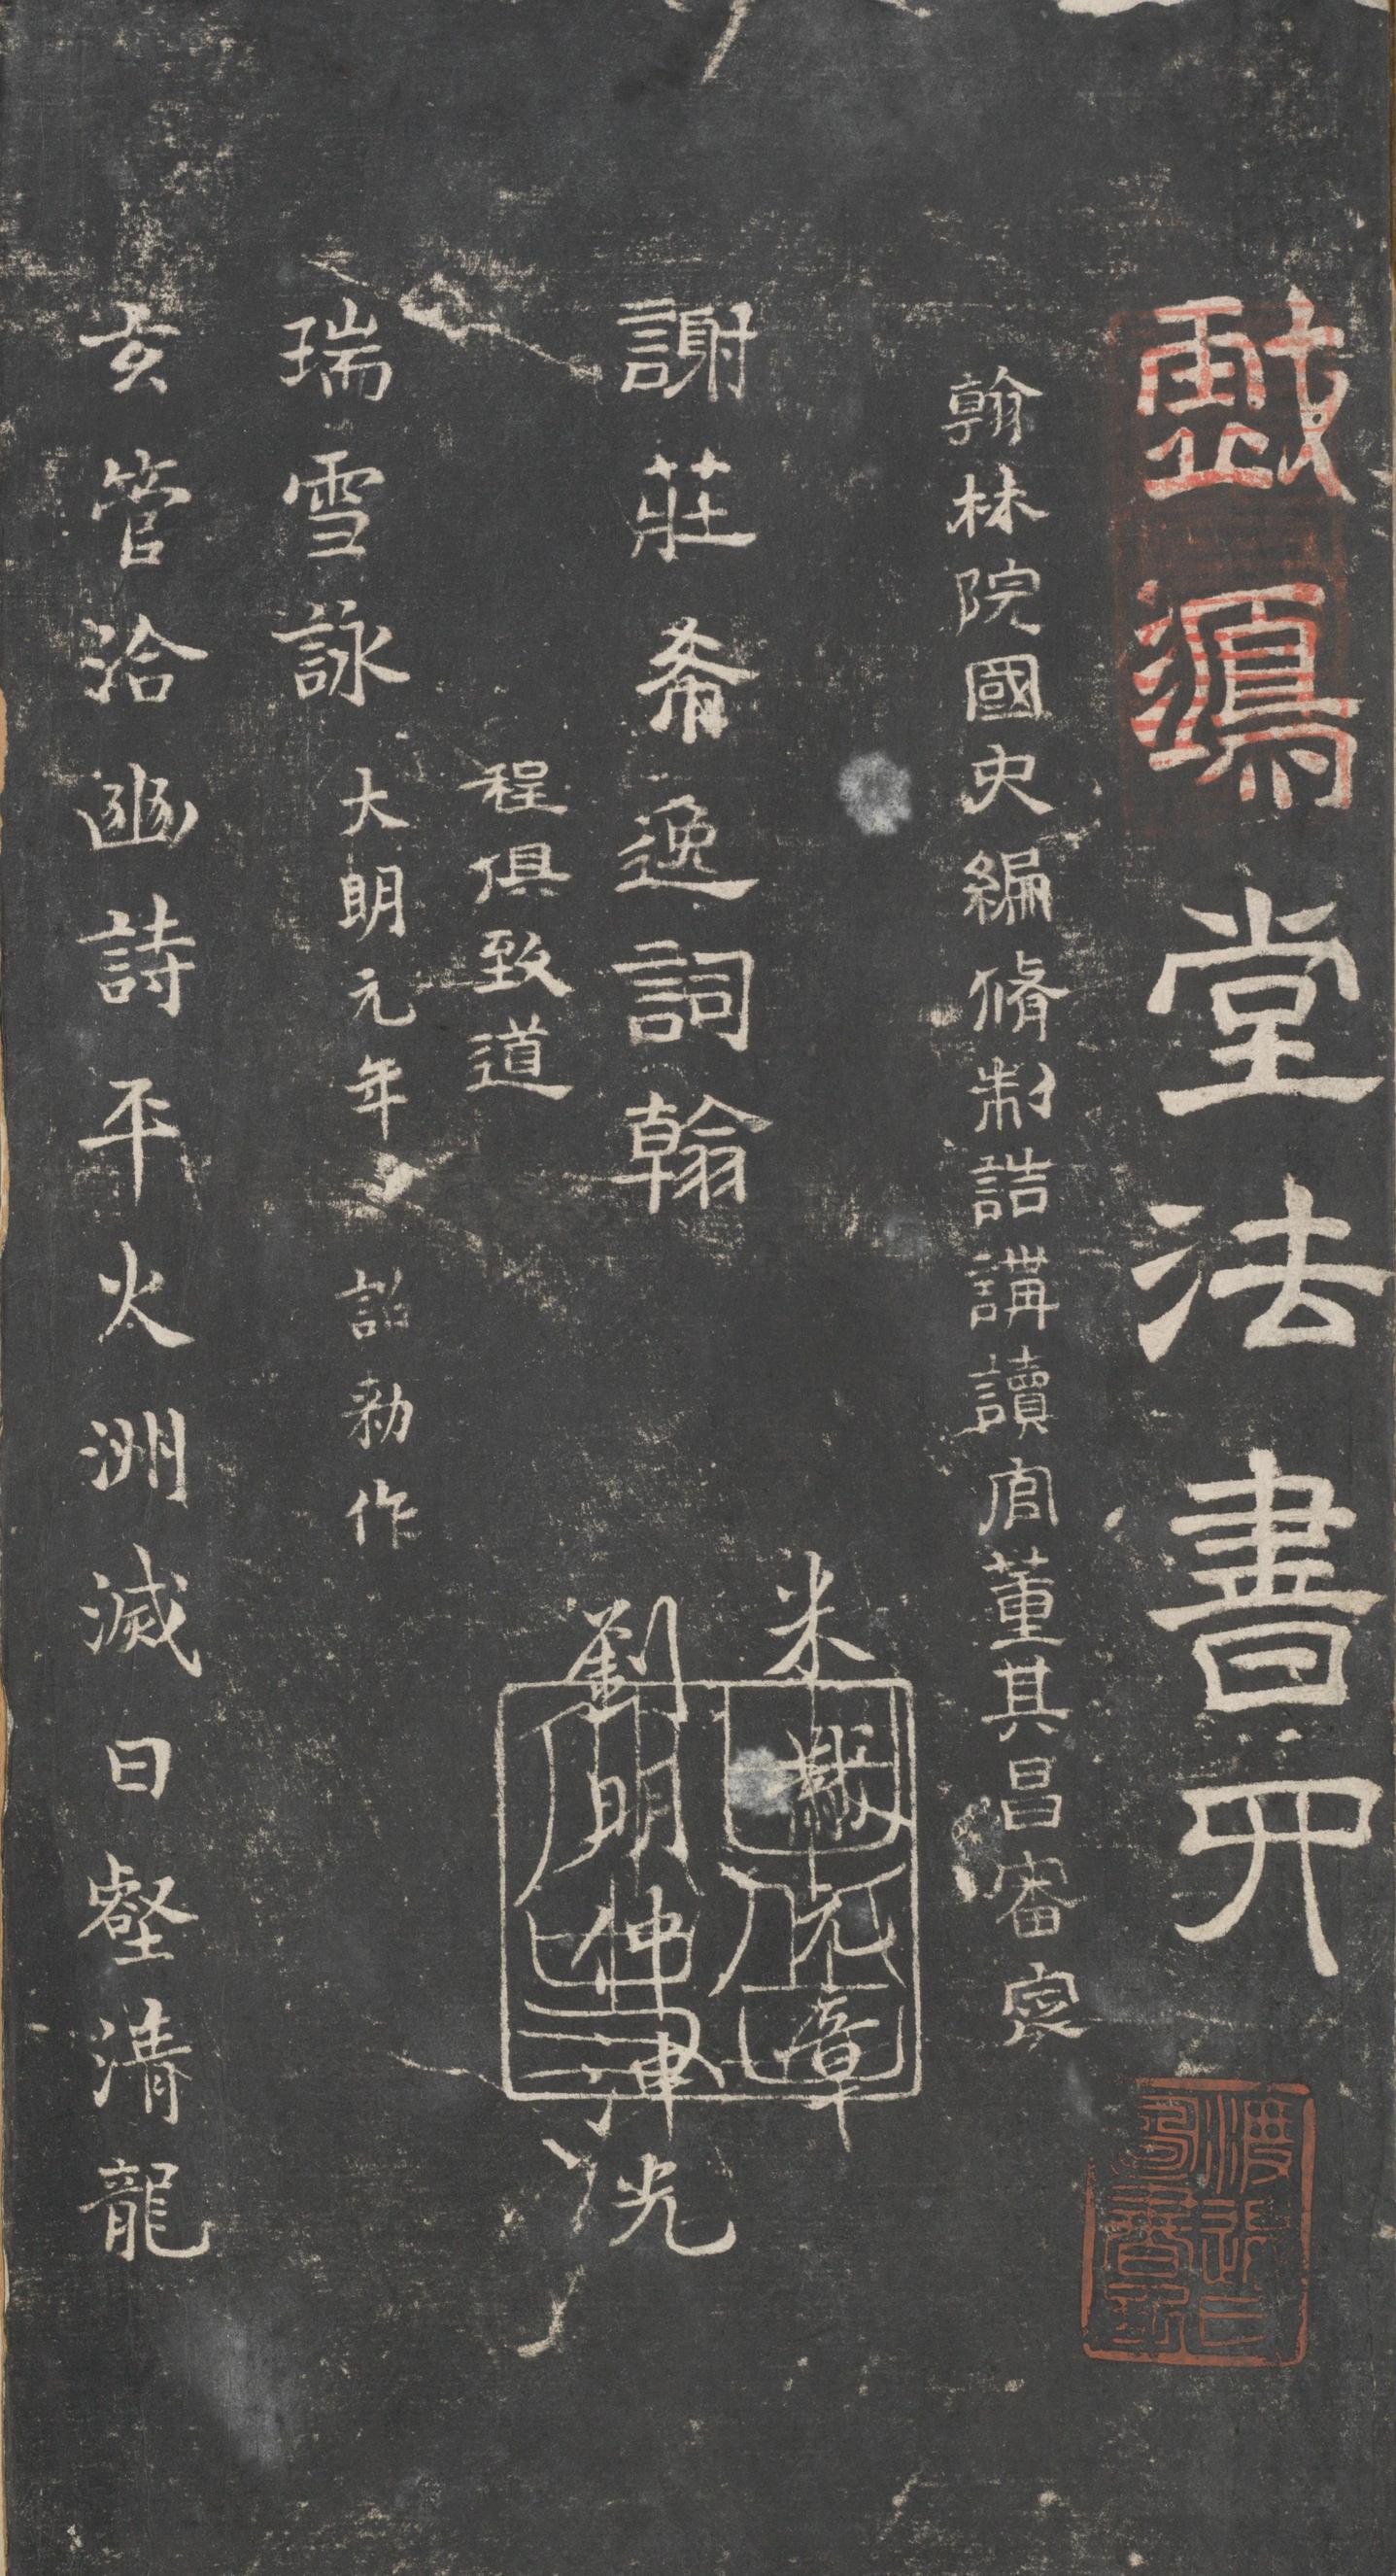 戲鴻堂法書四
翰林院國史編脩制誥講讀官董其昌審定
米黻元章
謝莊希逸詞翰
劉明仲津光
程俱致道
瑞雪詠 大明元年 詔勑作
玄管洽幽詩平火洲滅日壑清龍